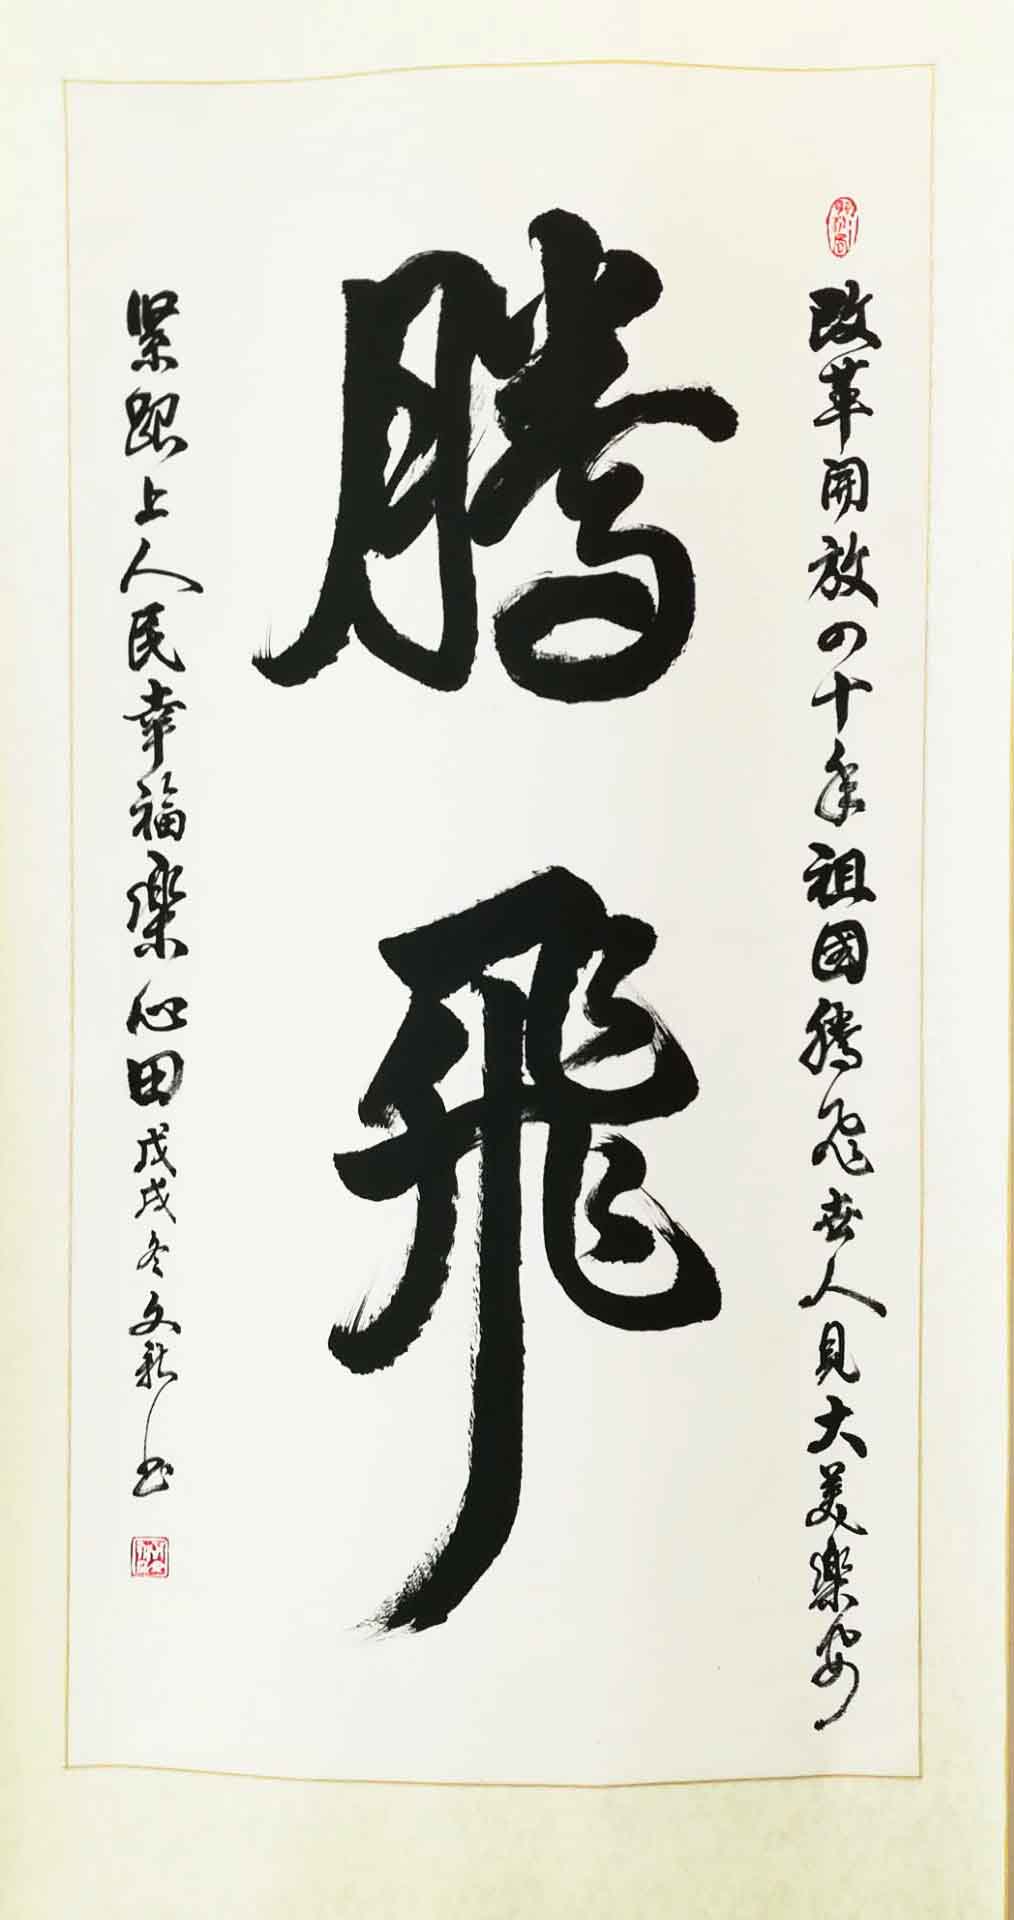 改革開放四十年祖國騰飛世人見大美樂安
騰飛
緊跟上人民幸福樂心田戊戌冬文新书